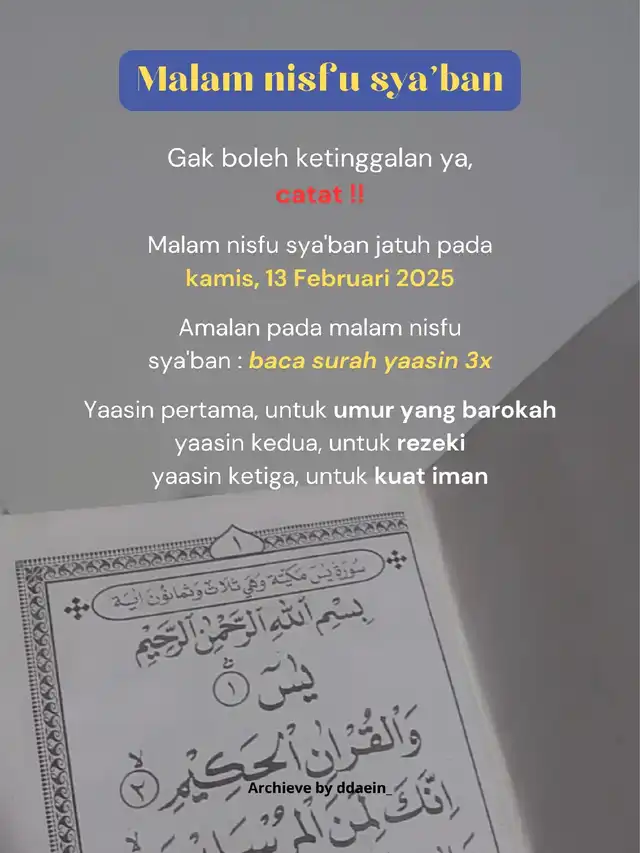 Malam nisfu sya'ban
Gak boleh ketinggalan ya,
catat !!
Malam nisfu sya'ban jatuh pada
kamis, 13 Februari 2025
Amalan pada malam nisfu
sya'ban : baca surah yaasin 3x
Yaasin pertama, untuk umur yang barokah
yaasin kedua, untuk rezeki
yaasin ketiga, untuk kuat iman
١
سورة يس مكية وهي ثلاث وثمانون اية
بِسْمِ اللّٰهِ الرَّحْمٰنِ الرَّحِيْمِ
يٰسۤ ۚ ١
وَالْقُرْاٰنِ الْحَكِيْمِۙ ٢
Archieve by ddaein_
اِنَّكَ لَمِنَ الْمُرْسَلِيْنَۙ